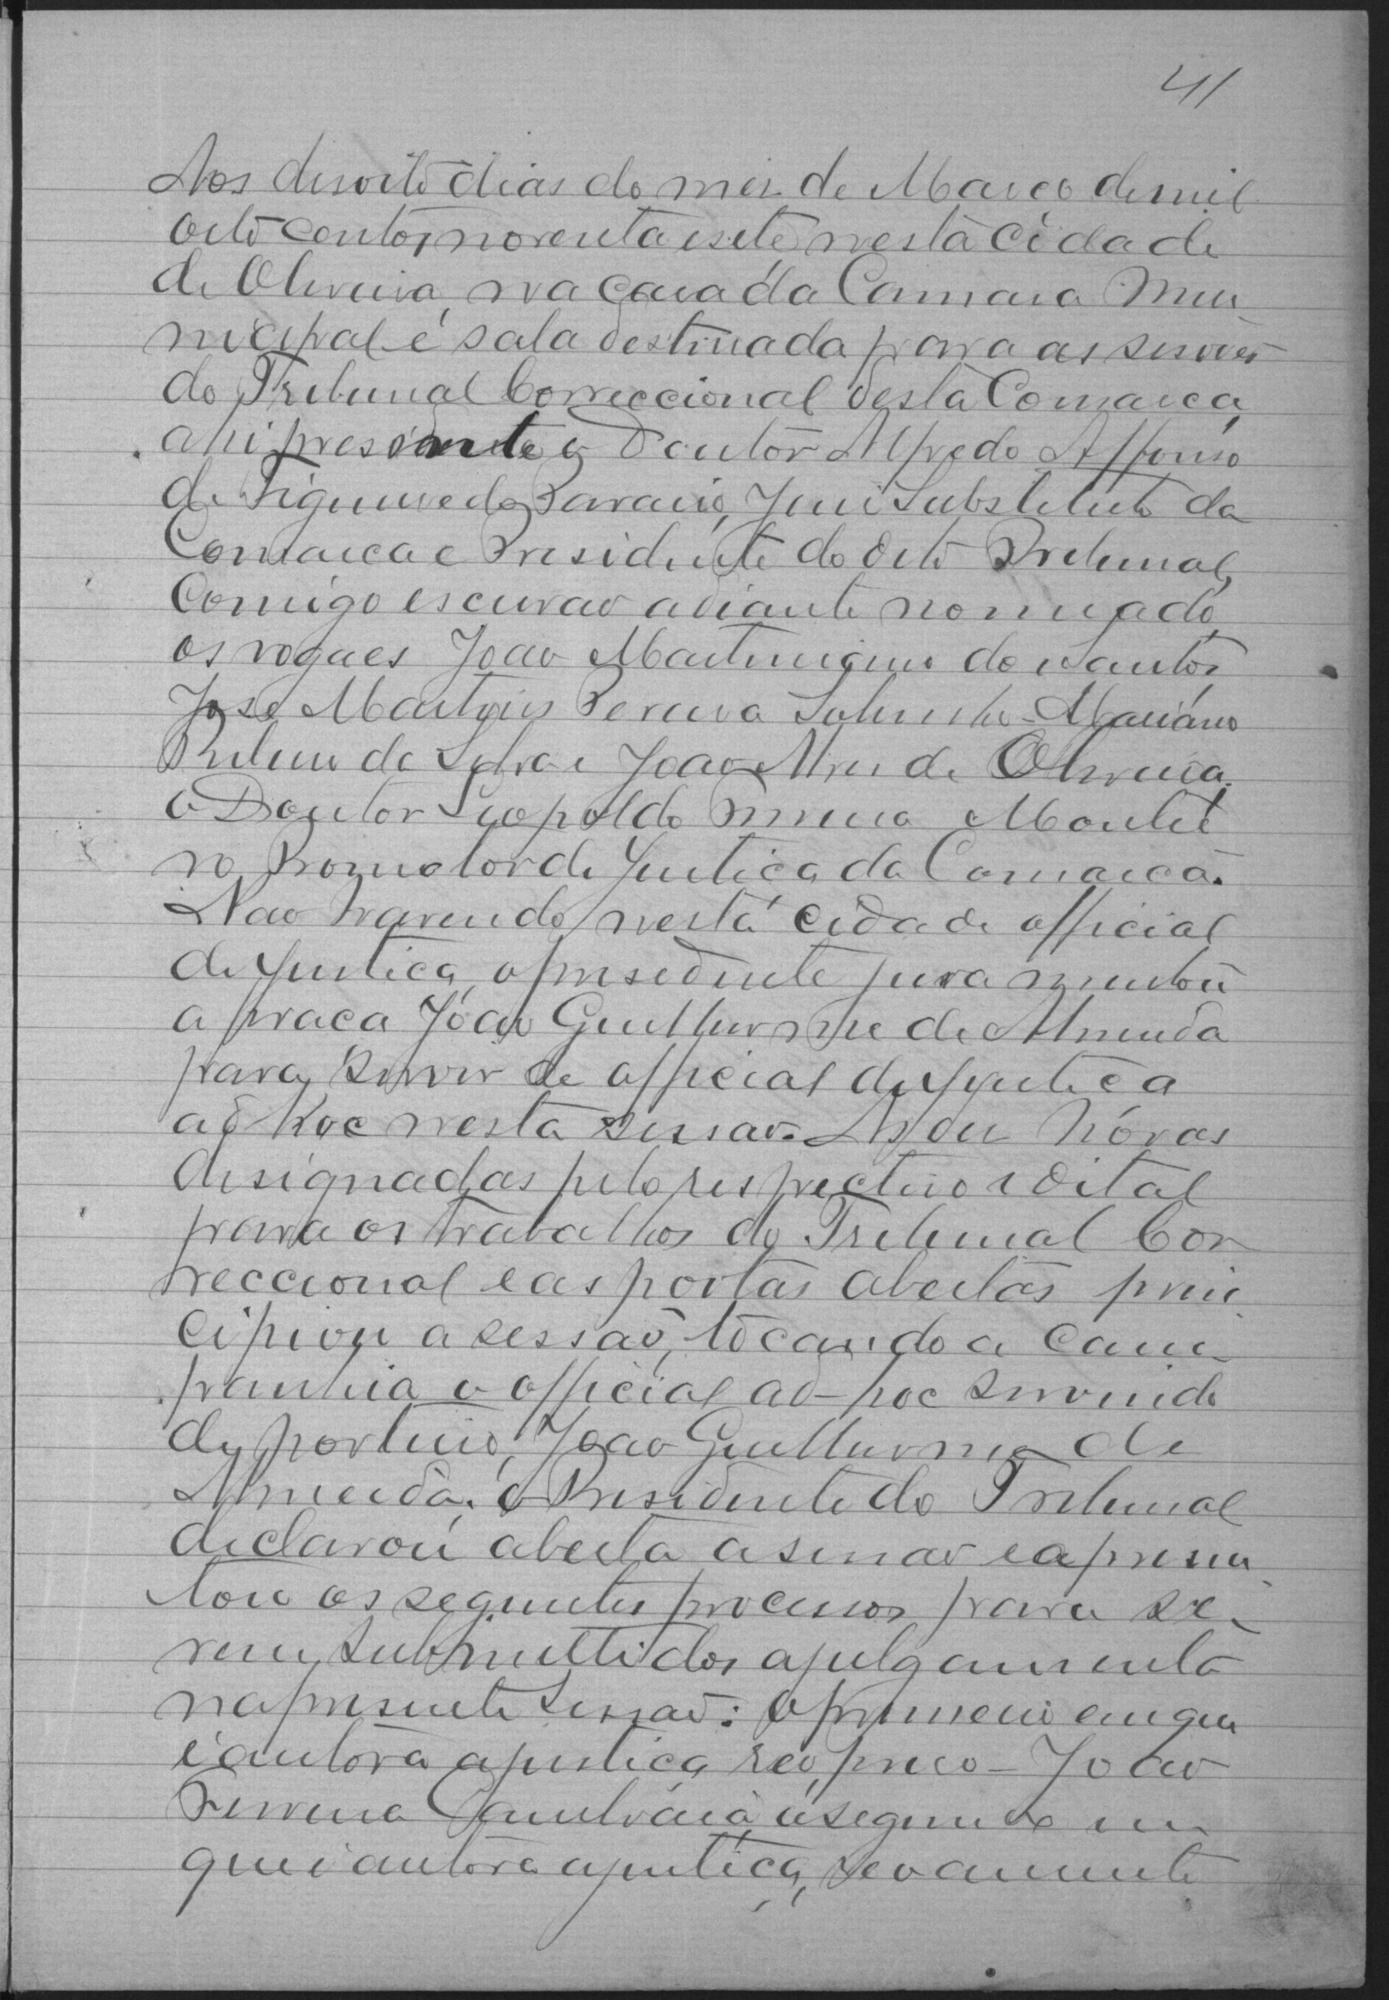 41
Aos desoito dias do mez de Março de mil
oito centos noventa e sete nesta cidade
de Oliveira, na casa da Camara Mu
nicipal e sala destinada para as sessões
do Tribunal Correccional desta Comarca,
ahi presente o Doutor Alfredo Affonso
de Figueiredo Juiz Substituto da
Comarca e Presidente do dito Tribunal,
Comigo escrivão adiante nomeado,
os vogaes João Martiniano dos Santos
José Martins Pereira Sobrinho Mariano
Ribeiro da Silva e João Alves de Oliveira,
o Doutor Leopoldo Monte
ro Promotor de Justiça da Comarca.
Não havendo nesta cidade official
de Justiça, o presidente juramentou
a praça João Guilherme de Almeida
para servir de official de Justiça
ad hoc nesta sessão. As dez hóras
designadas pelo respectivo edital
para os trabalhos do Tribunal Cor
reccional e as portas abertas prin
cipiou a sessão, tocando a cam
painha o official ad-hoc servindo
de porteiro, João Guilherme de
Almeida, o Presidente do Tribunal
declarou aberta a sessão e apresen
tou os seguintes processos para se
rem submettidos a julgamento
na presente sessão: o primeiro em que
é autora a justiça, réo preso - João
Ferreira o segundo em
que é autora a justiça, réo ausente